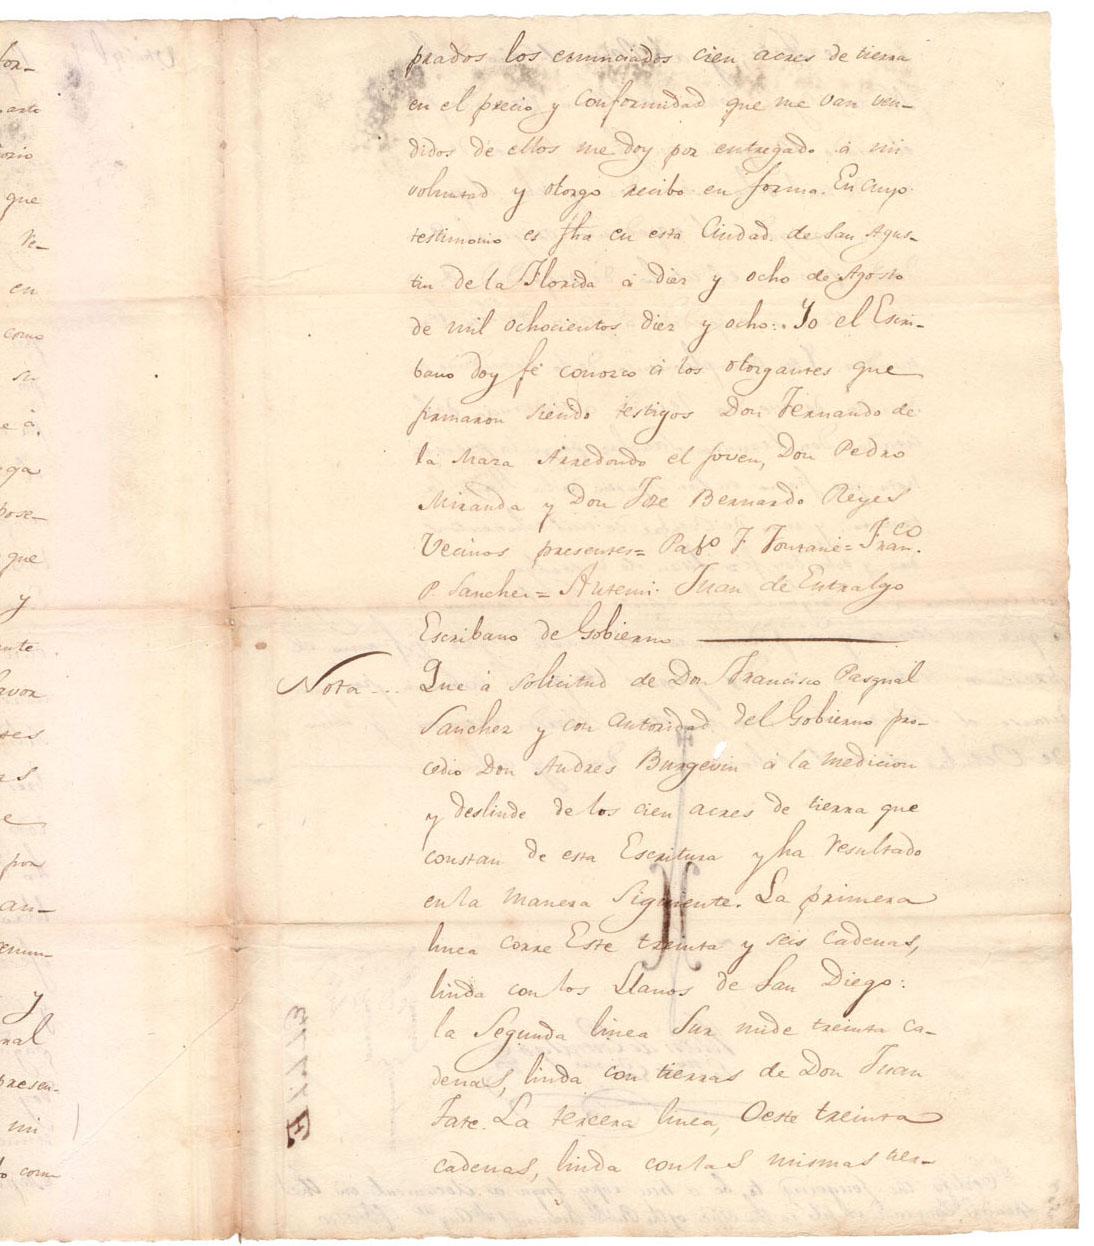 prados los enunciados cien acres de tierra
en el precio y conformidad que me van ven-
didos de ellos me doy por entregado á mi
voluntad y otorgo recibo en forma. En cuyo
testimonio es fha en esta Ciudad de San Agus-
tin de la Florida á diez y ocho de Agosto
de mil ochocientos diez y ocho:. Yo el Escri-
bano doy fé conozco á los otorgantes que
firmaron siendo testigos Don Fernando de
la Maza Arredondo el joven, Don Pedro
Miranda y Don Jose Bernardo Reyes
Vecinos presentes= Pablo F Fontané= Franco.
P. Sanchez= Antemi. Juan de Entralgo
Escribano de Gobierno
Nota... Que á solicitud de Don Francisco Pasqual
Sanchez y con autoridad del Gobierno pro-
cedio Don Andres Burgevin á la medicion
y deslinde de los cien acres de tierra que
constan de esta Escritura y ha resultado
en la manera siguiente. La primera
linea corre Este treinta y seis cadenas,
linda con los Llanos de San Diego:
la Segunda linea Sur mide treinta ca-
denas, linda con tierras de Don Juan
Fate. La tercera linea, Oeste treinta
cadenas, linda con las mismas tier-
que
en
como
que
y
por
y
mi